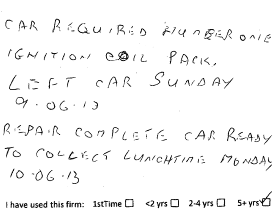 CAR REQUIRED NUMBER ONE
IGNITION COIL PACK.
LEFT CAR SUNDAY
9.06.13
REPAIR COMPLETE CAR READY
TO COLLECT LUNCHTIME MONDAY
10.06.13
I have used this firm: 1stTime ☐ <2 yrs ☐ 2-4 yrs ☐ 5+ yrs ☑